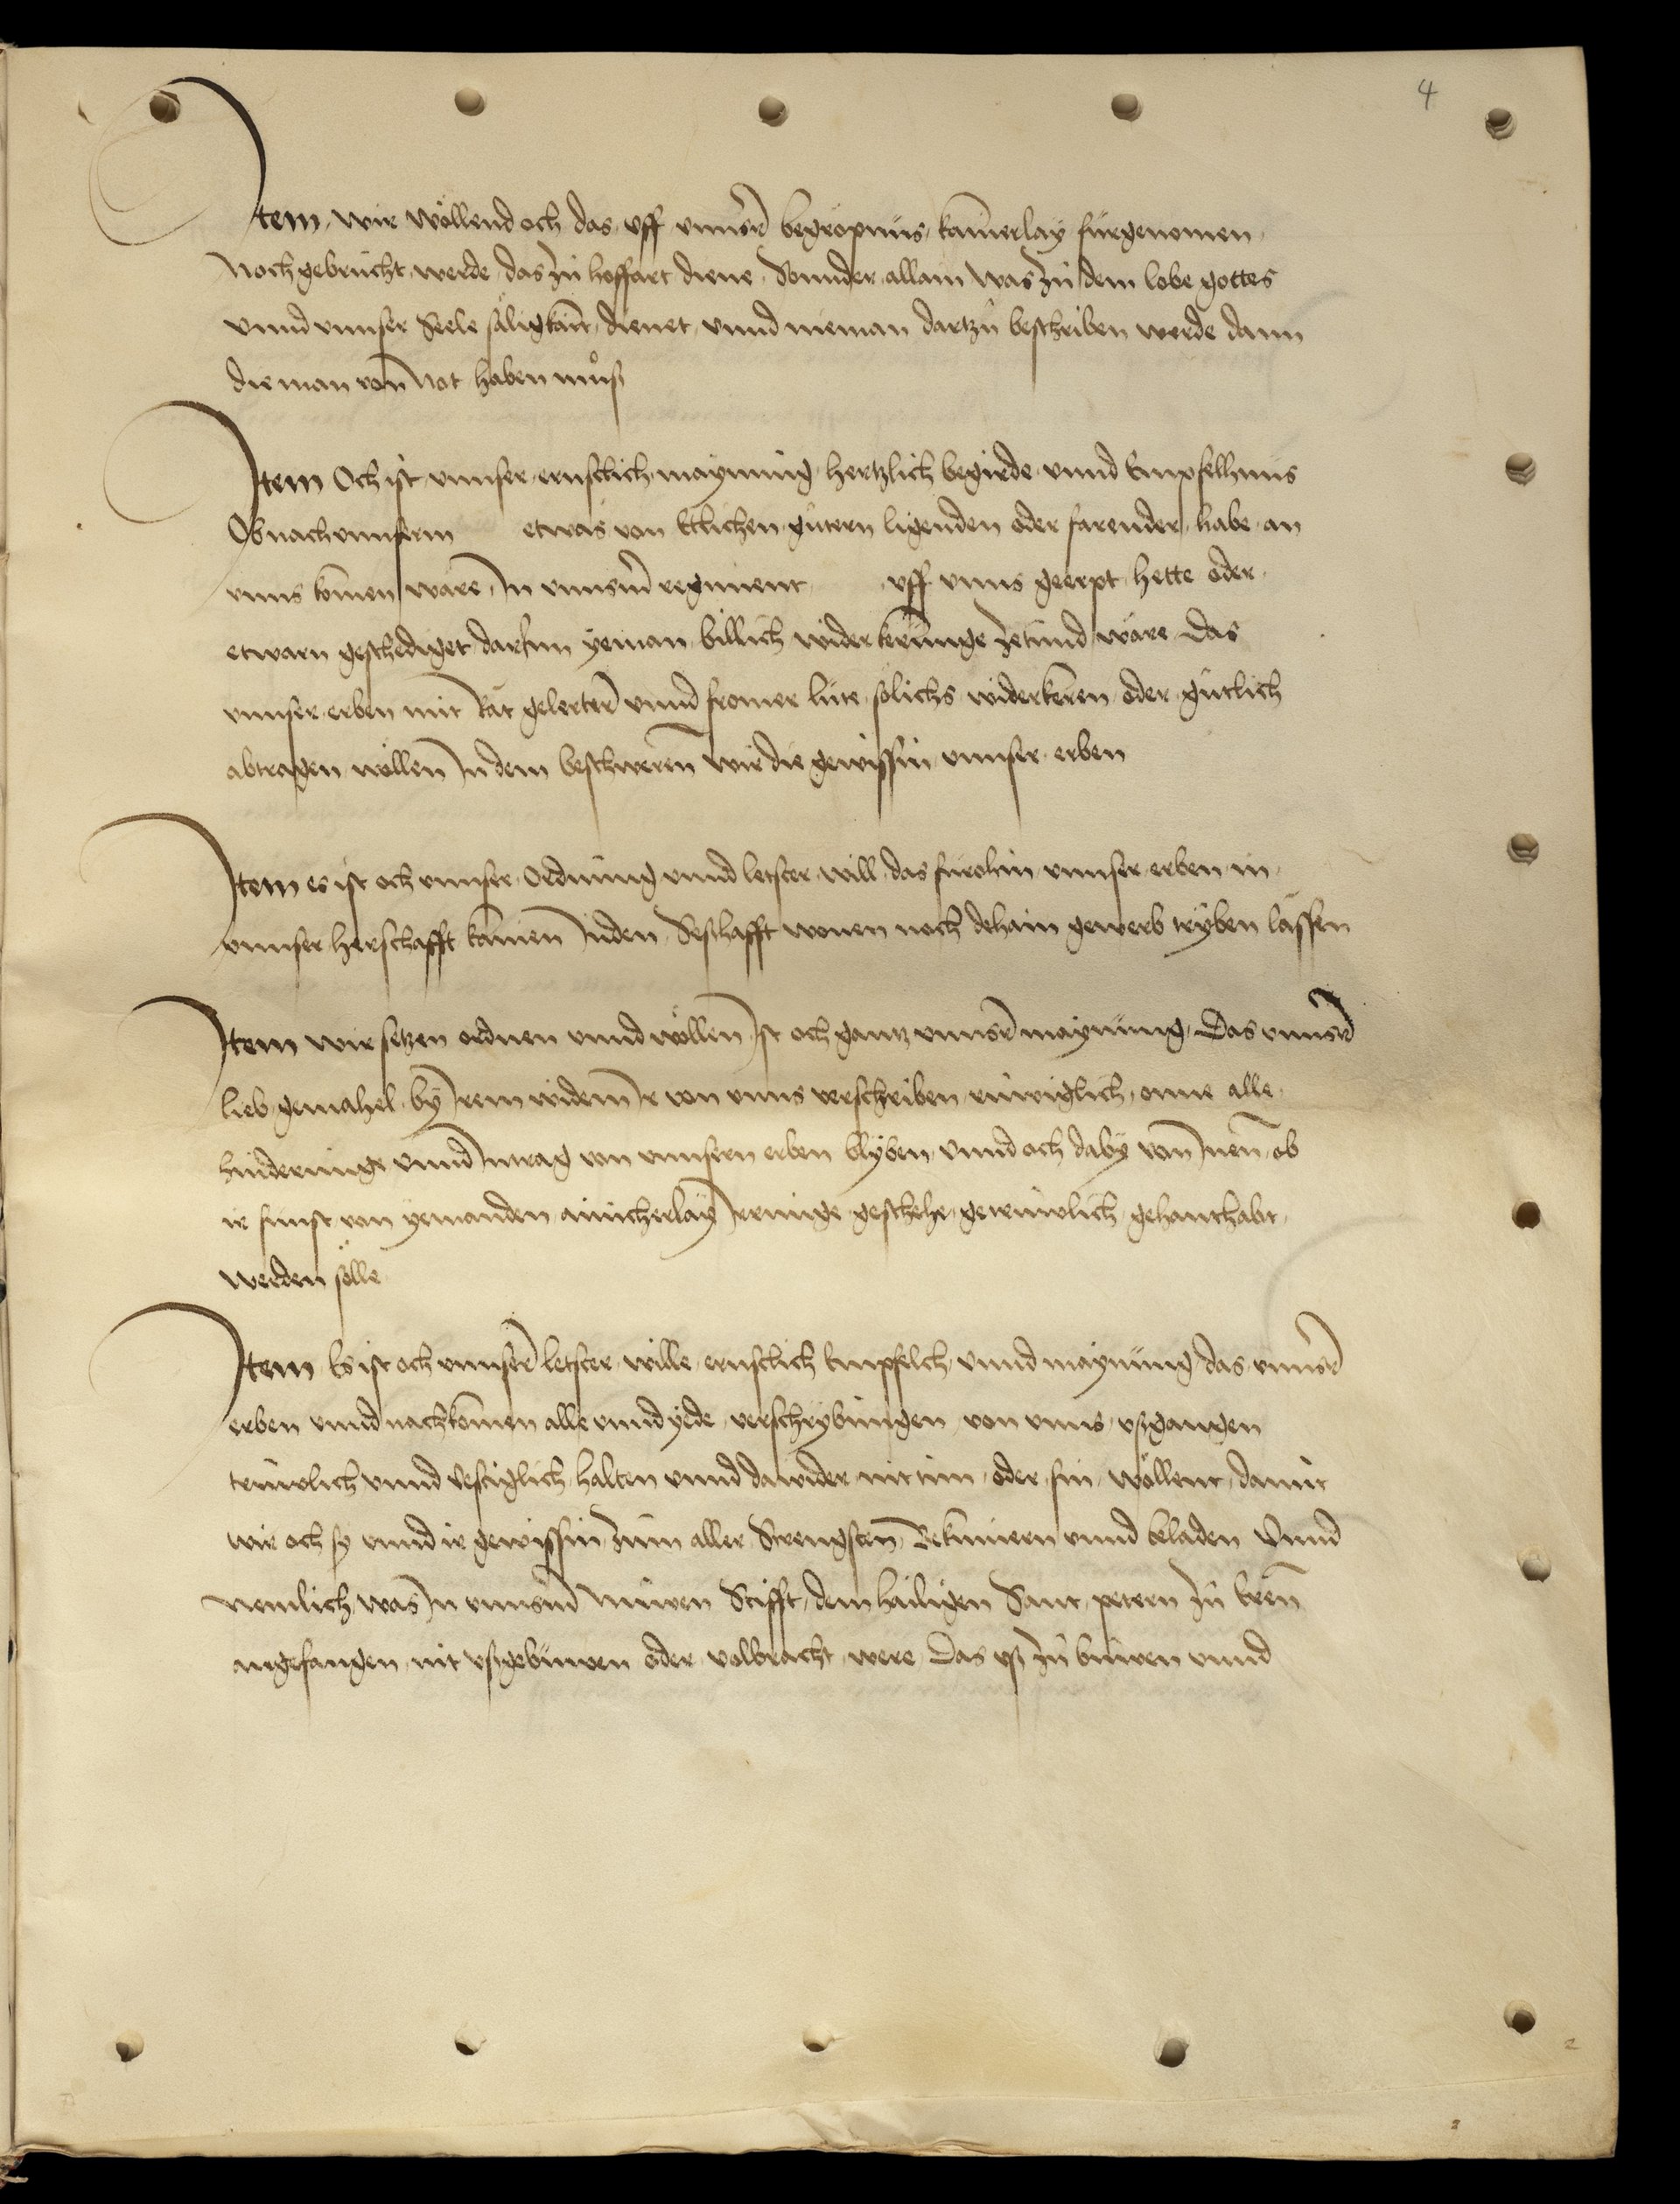 4
Item wir wöllend och das uff unnser begröpnüs kainerlay fürgenomen
Noch gebrucht werde das zu hoffart diene Sonnder allain was zu dem lobe gottes
unnd unnser Seele säligkait dienet unnd nieman dartzu beschriben werde dann
die man von Not haben muͦß
Item Och ist unnser ernstlich maynung hertzlich begirde unnd Empfelhnus
Ob nach unnserm etwas von Ettlichen gütern ligenden oder farender habe an
unns komen ware In unnserm regiment uff unns geerpt hette oder
etwarn geschediget darInn yeman billich widerkerunge zetund wäre Das
unnser erben mit Rät gelerter unnd fromer lüte sölichs widerkeren oder gütlich
abtragen wöllen In dem beschweren wir die gewissin unnser erben
Item es ist och unnser Ordnung unnd letster will das fürohin unnser erben in
unnser herschafft kainen Juden Seßhafft wonen noch dehain gewerb tryben lässen
Item wir setzen ordnen unnd wöllen Ist och gantz unnser maynung Das unnser
lieb gemahel by Irem widem Ir von unns verschriben rüwiglich onne alle
hinderunge unnd Intrag von unnsern erben blyben unnd och daby von Inen ob
ir sunst von yemanden ainicherlay Irrunge geschehe getrüwlich gehanthabt
werden sölle
Item Es ist och unnser letster wille ernstlich Empfelch unnd maynung das unnser
erben unnd nachkomen alle unnd yede verschrybungen von unns ußgangen
trüwlich unnd Vestiglich halten unnd dawider nit tun oder sin wöllent damit
wir och sy unnd ir gewissin zum aller Strengsten Bekümern unnd beladen Unnd
nemlich was In unnserm Nüwen Stifft dem hailigen Sant petern zu
angefangen nit ußgebuwen oder volbracht were Das uß zu buwen unnd